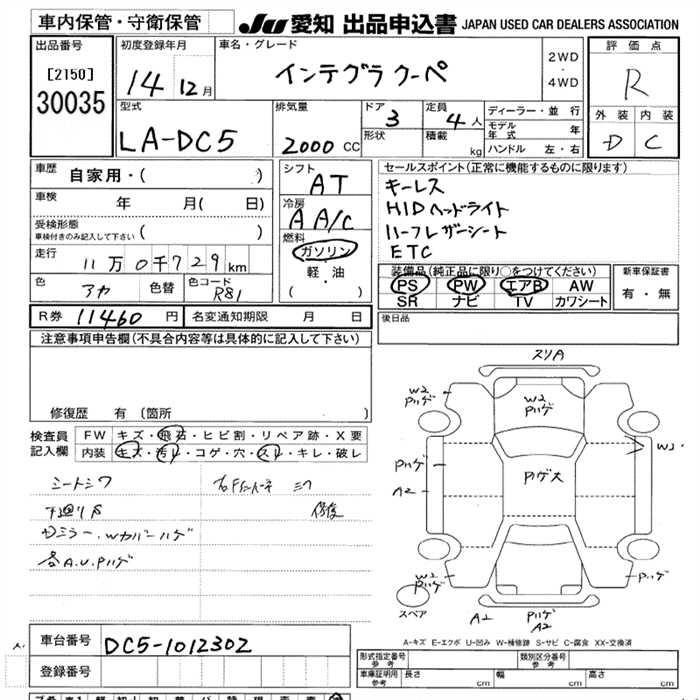 車内保管・守衛保管
JU 愛知 出品申込書 JAPAN USED CAR DEALERS ASSOCIATION
出品番号
[2150]
30035
初度登録年月
14 12月
車名・グレード
インテグラ クーペ
2WD
・
4WD
評価点
R
外装 内装
D C
型式
LA-DC5
排気量
2000 CC
ドア
3
形状
定員
4人
積載
kg
ディーラー・並 行
モデル年式 年
ハンドル 左・右
車歴
自家用・( )
車検
年 月( 日)
受検形態
車検付きのみ記入して下さい ( )
走行
11万0千729km
色
アカ
色替
色コード
R81
シフト
AT
冷房
A A/C
燃料
ガソリン
軽・油
( ・ )
セールスポイント(正常に機能するものに限ります)
キーレス
HIDヘッドライト
ハーフレザーシート
ETC
装備品(純正品に限り○をつけてください)
PS PW エアB AW
SR ナビ TV カワシート
新車保証書
有・無
R券 11460 円
名変通知期限 月 日
後日品
注意事項申告欄(不具合内容等は具体的に記入して下さい)
修復歴 有 (箇所 )
検査員
記入欄
FW キズ・飛石・ヒビ割・リペア跡・X要
内装 キズ・汚レ・コゲ・穴・スレ・キレ・破レ
シートシワ
下廻りS
Dミラー、Wカバーハゲ
各A.U.Pハゲ
修復
スリA
W2
Pハゲ
W2
Pハゲ
W2
Pハゲ
A2
Pハゲ大
W2
Pハゲ
Pハゲ
スペア
A2
Pハゲ
A2
A-キズ E-エクボ U-凹み W-補修跡 S-サビ C-腐食 XX-交換済
車台番号
DC5-1012302
登録番号
形式指定番号
参考
類別区分番号
参考
車庫証明用
参考
長さ cm
幅 cm
高さ cm